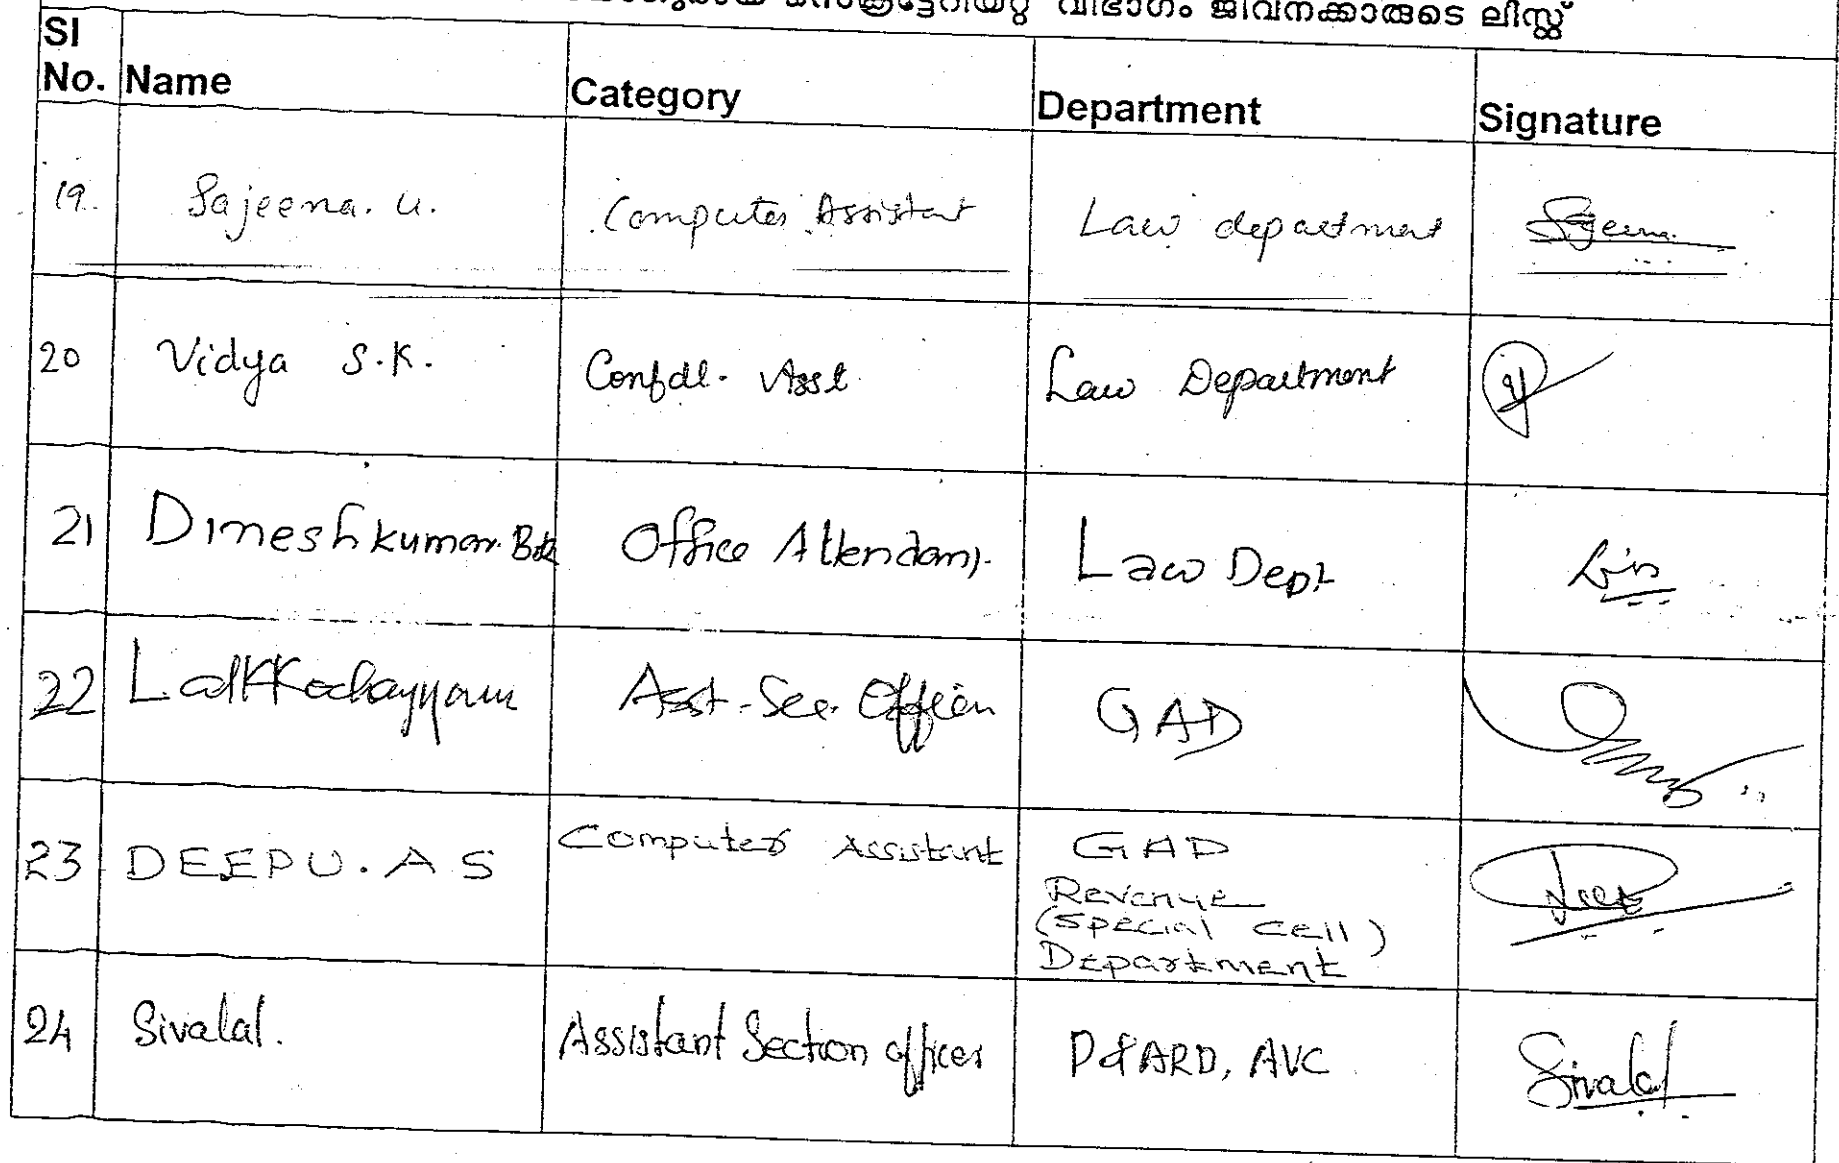 വിഭാഗം ജീവനക്കാരുടെ ലിസ്റ്റ്
Sl No. Name Category Department Signature
19. Sajeena. U. Computer Assistant Law department
20 Vidya S.K. Confdl. Asst. Law Department
21 Dineshkumar. Office Attendant. Law Dept
22 Asst. Sec. Officer GAD
23 DEEPU. A S Computer Assistant GAD
Revenue
(special cell)
Department
24 Sivalal. Assistant Section officer P&ARD, AVC Sivalal